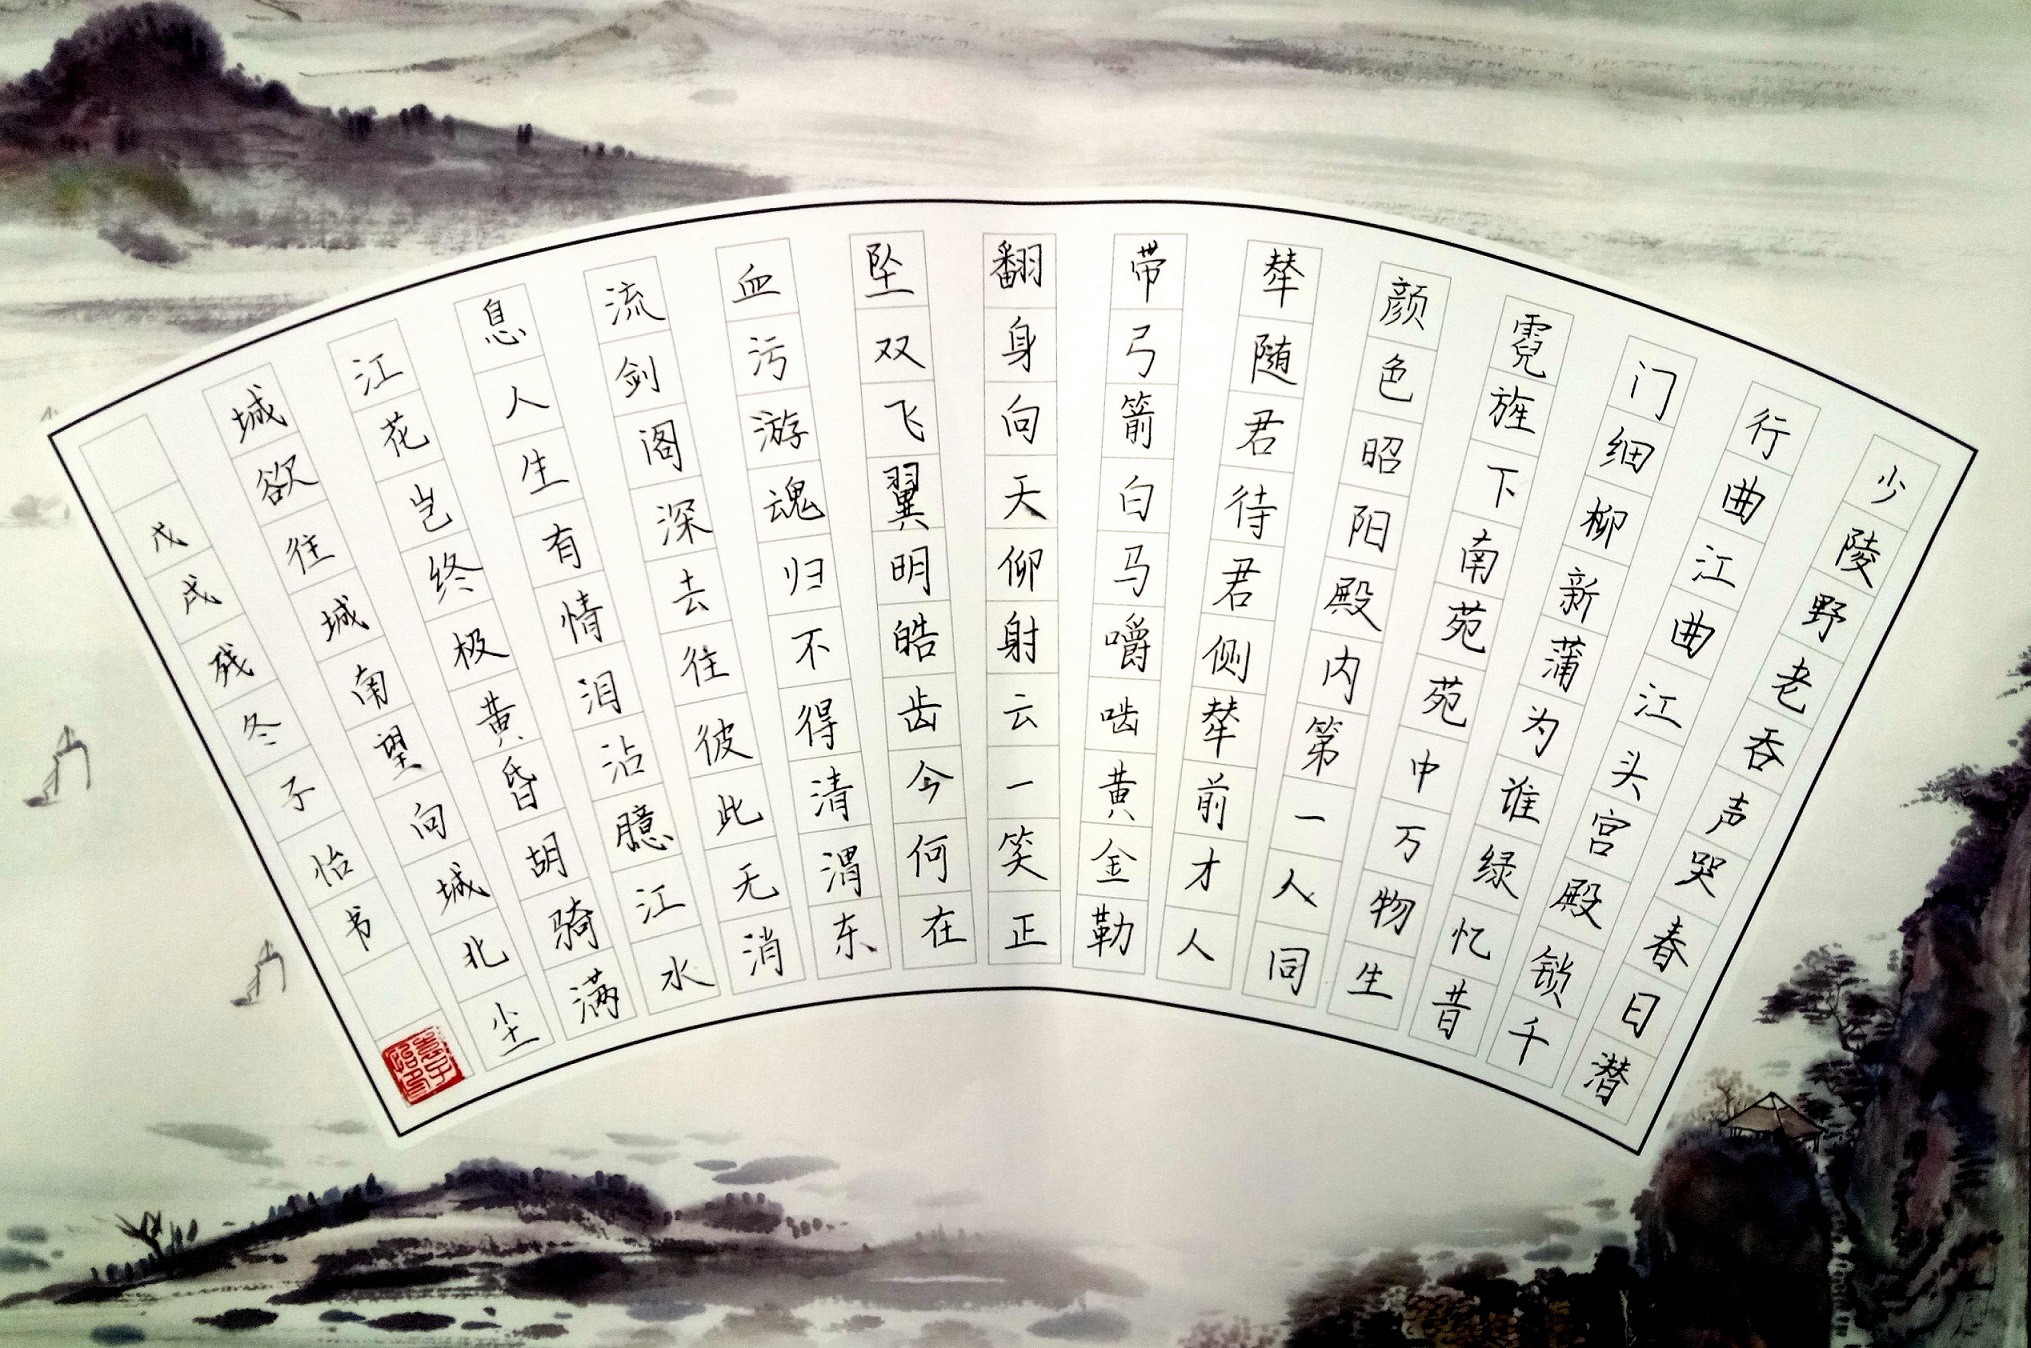 少陵野老吞声哭春日潜
行曲江曲江头宫殿锁千
门细柳新蒲为谁绿忆昔
霓旌下南苑苑中万物生
颜色昭阳殿内第一人同
辇随君待君侧辇前才人
带弓箭白马嚼啮黄金勒
翻身向天仰射云一笑正
坠双飞翼明皓齿今何在
血污游魂归不得清渭东
流剑阁深去往彼此无消
息人生有情泪沾臆江水
江花岂终极黄昏胡骑满
城欲往城南望向城北尘
戊戌残冬子怡书